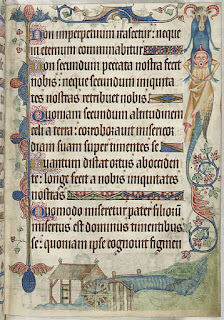 Non imperpetuum irascetur: neque
in eternum comminabitur.
Non secundum peccata nostra fecit
nobis: neque secundum iniquita
tes nostras retribuet nobis.
Quoniam secundum altitudinem
celi a terra: corroboravit misericor
diam suam super timentes se.
Quantum distat ortus ab occiden
te: longe fecit a nobis iniquitates
nostras
Quomodo miseretur pater filiorum
misertus est dominus timentibus
se: quoniam ipse cognovit figmen